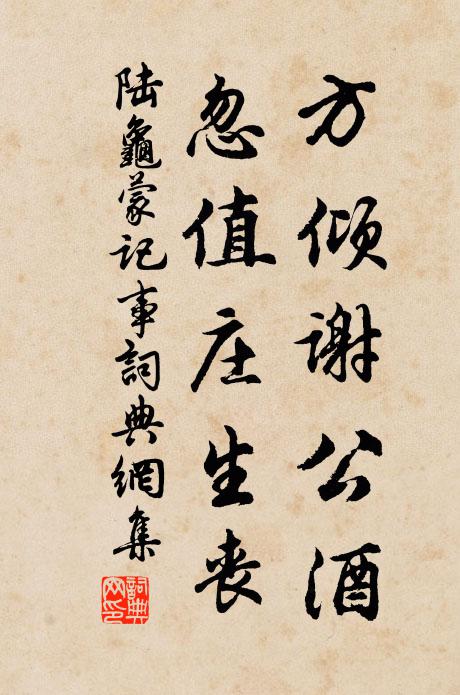 方倾谢公酒
忽值庄生丧
陆龜蒙记事詞典網集
詞典网印